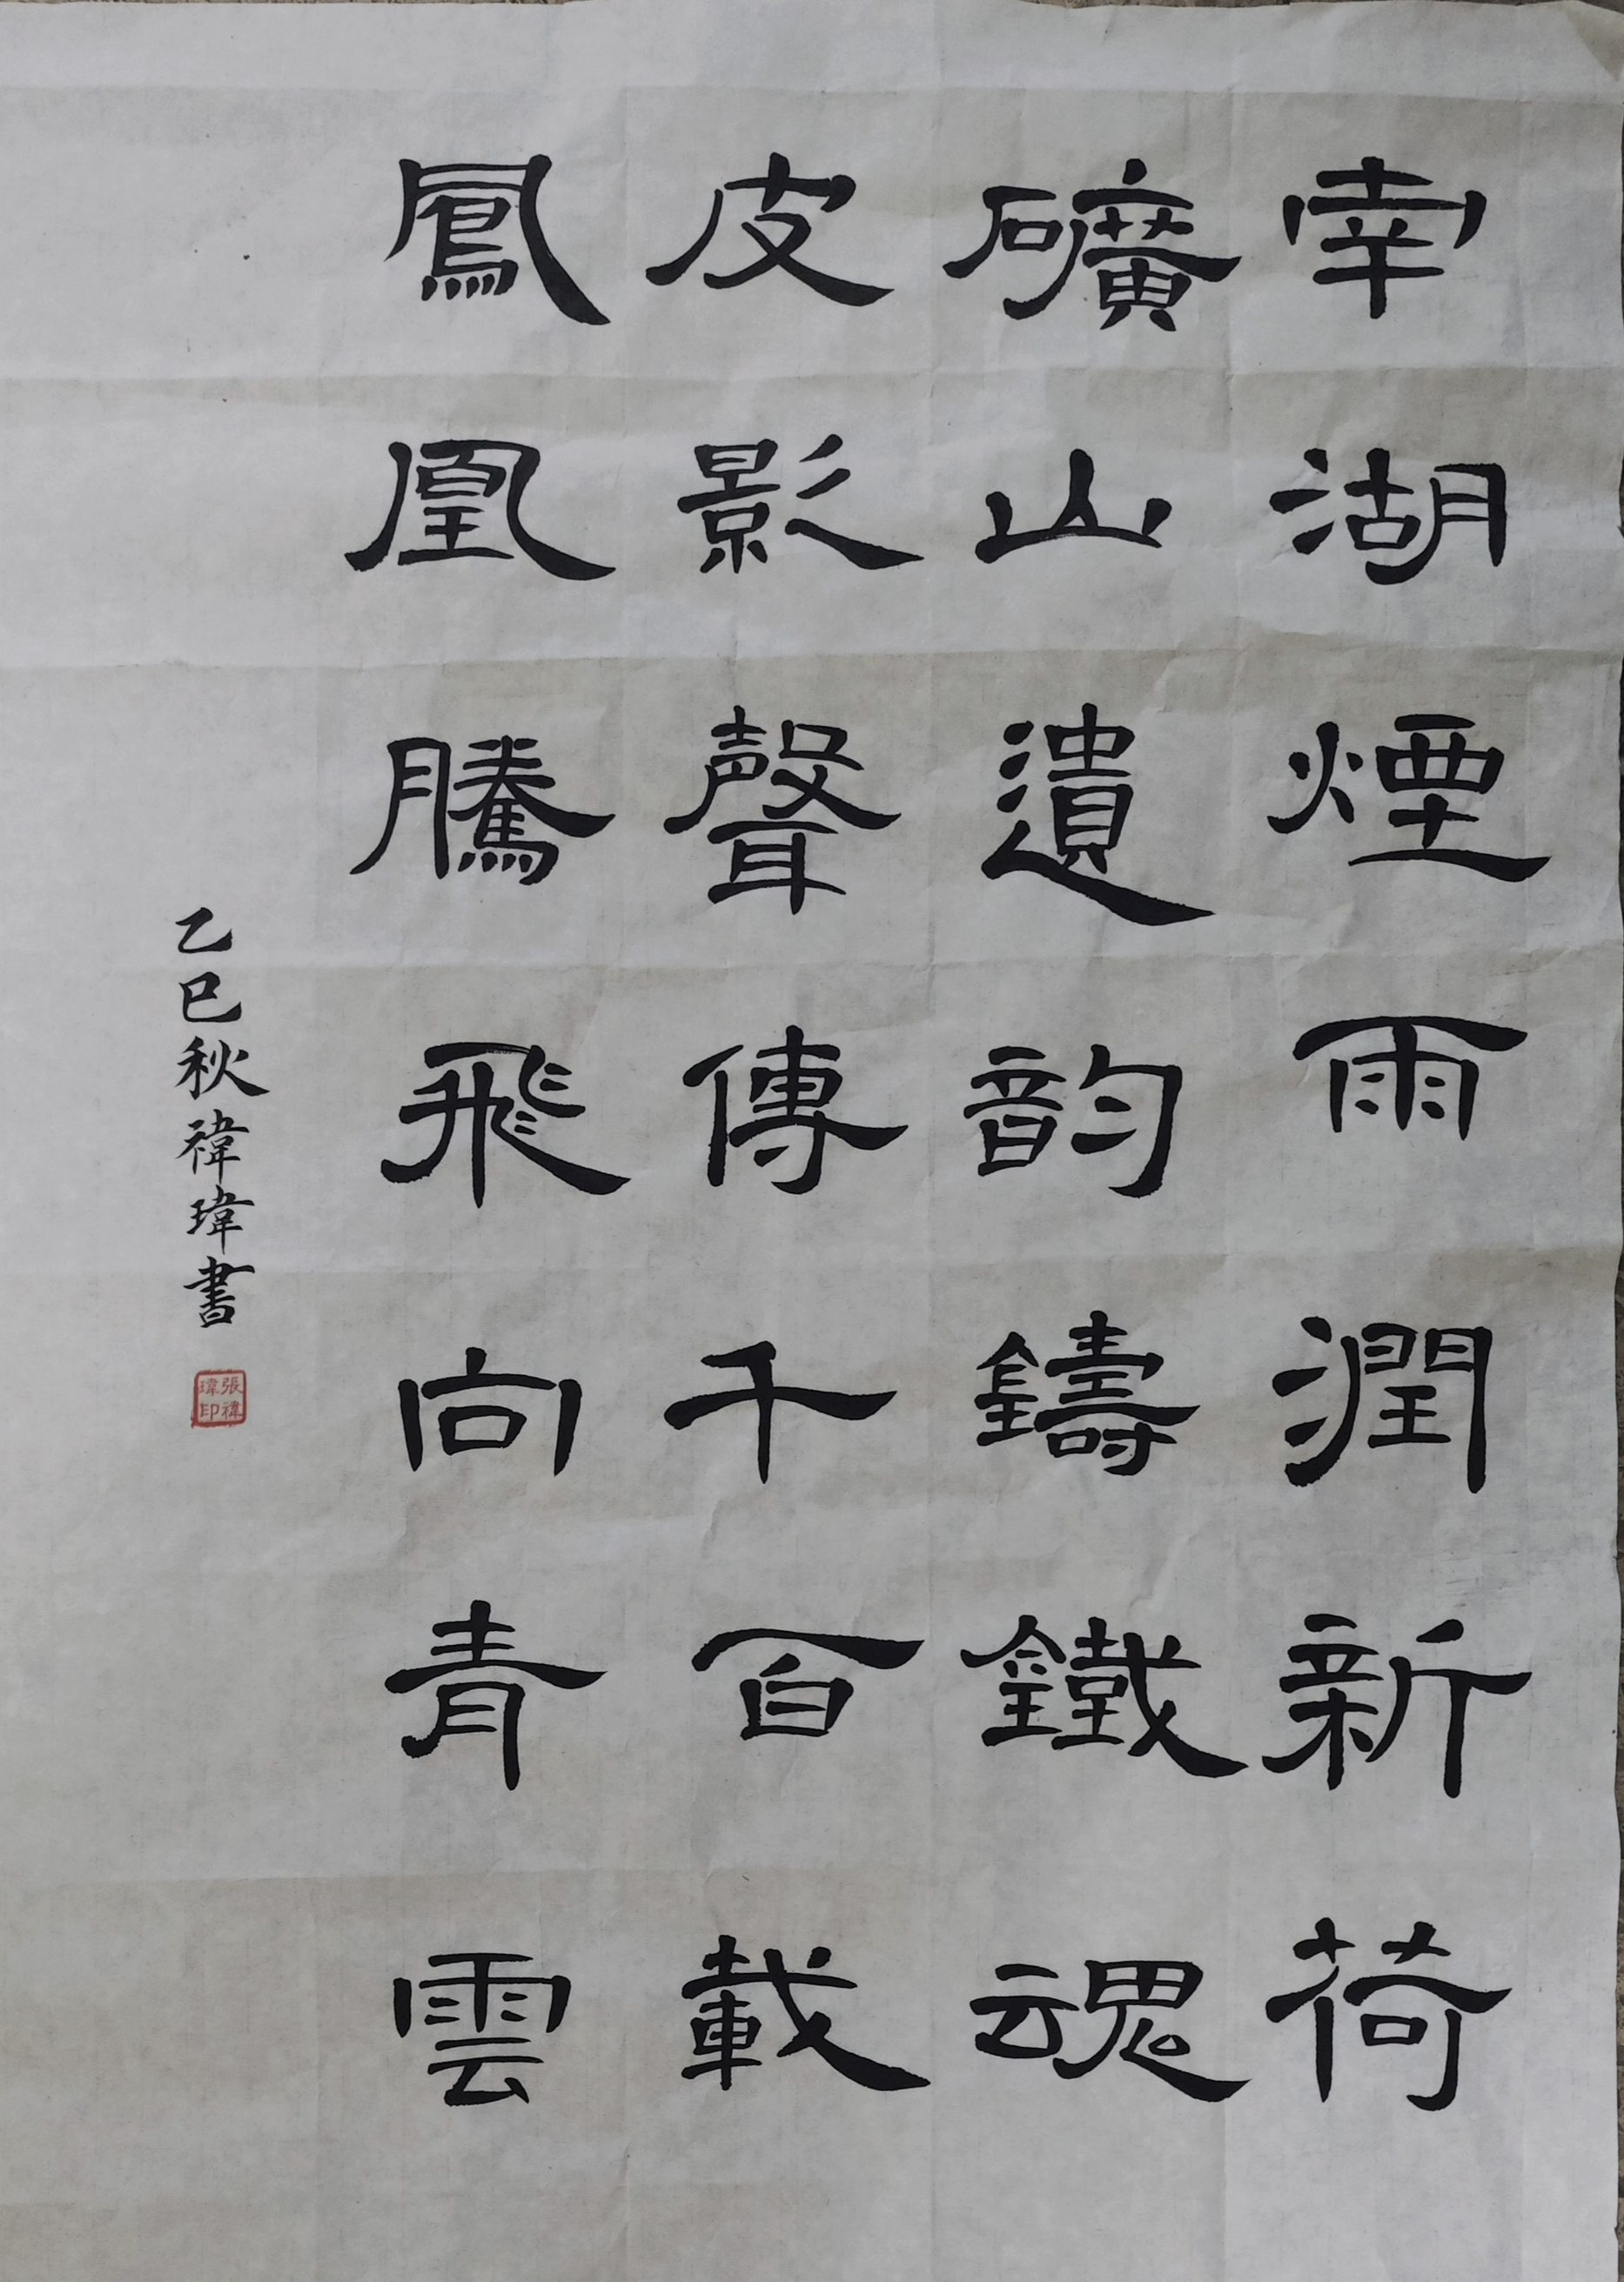 南湖煙雨潤新荷
礦山遺韵鑄鐵魂
皮影聲傳千百載
鳳凰騰飛向青雲
乙巳秋禕瑋書
張禕
瑋印